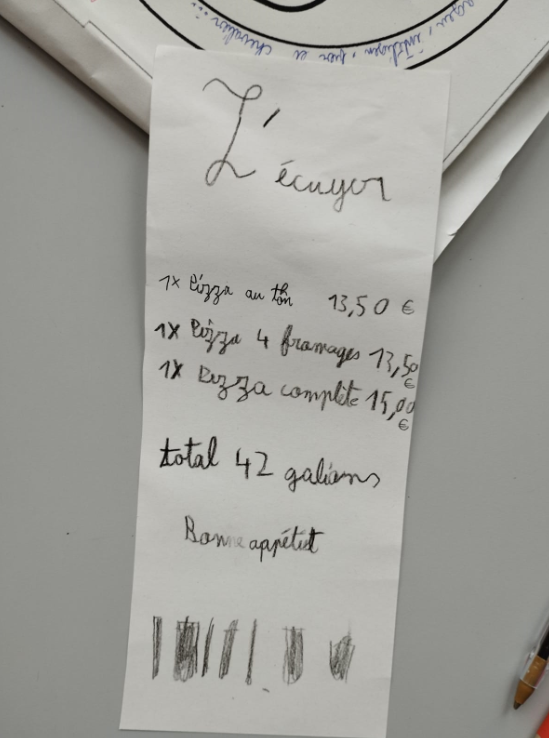 ager, intelligen, fier et chevalier...
L'écuyer
1x Pizza au thon 13,50 €
1x Pizza 4 fromages 13,50 €
1x Pizza complète 15,00 €
total 42 galions
Bonne appétit